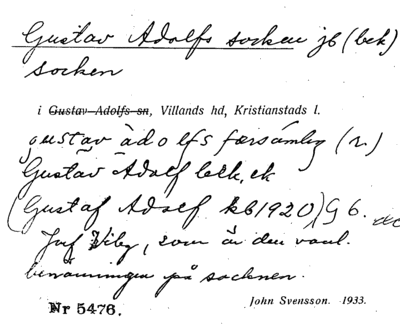 Gustav Adolfs socken jb (bek)
socken
i Gustav-Adolfs-sn, Villands hd, Kristianstads l.
gustav adolfs församling (r.)
Gustav Adolf
(Gustaf Adolf kb1920) G 6.
Jmf Viby, som är den vanl.
benämningen på socknen.
Nr 5476.
John Svensson. 1933.